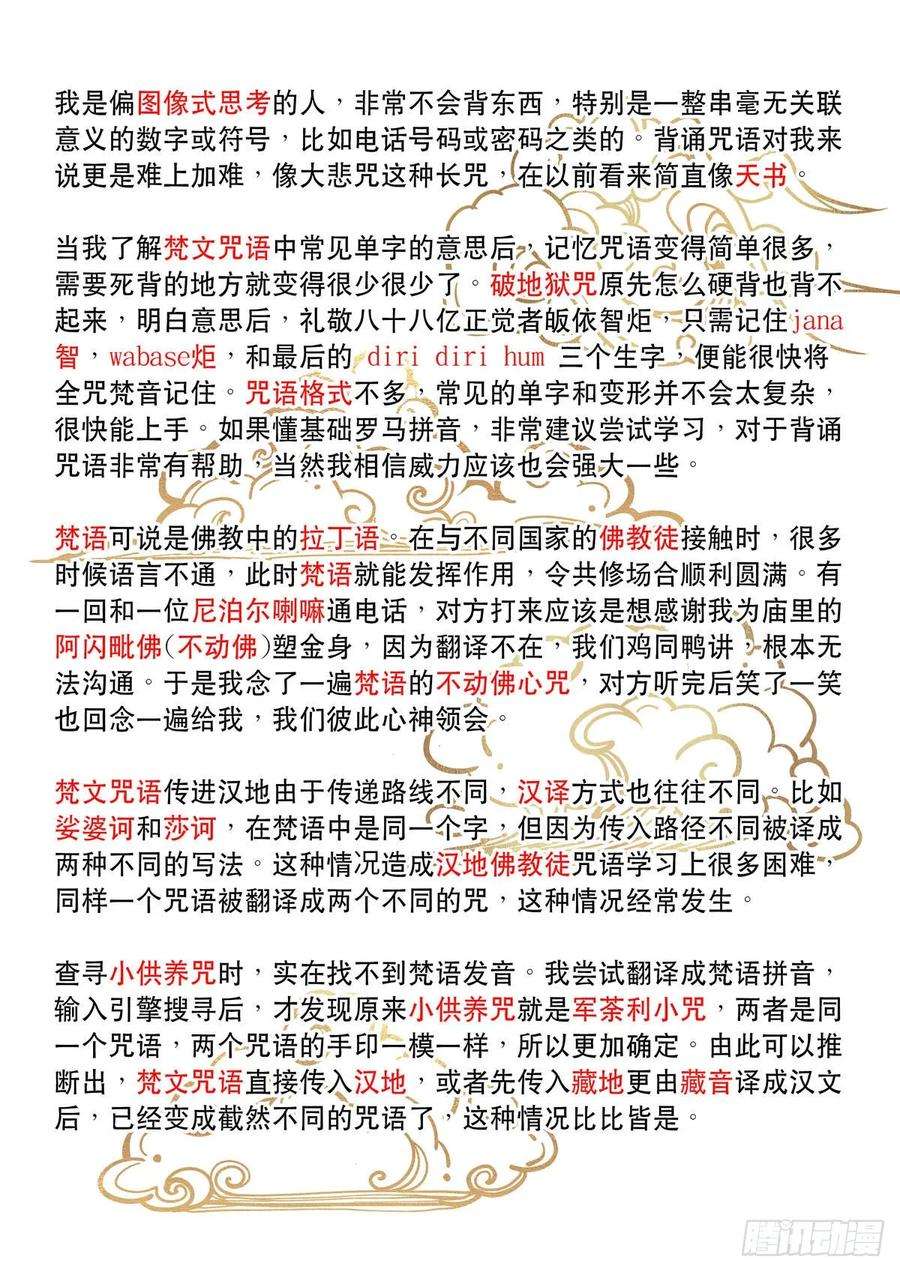 我是偏图像式思考的人，非常不会背东西，特别是一整串毫无关联
意义的数字或符号，比如电话号码或密码之类的。背诵咒语对我来
说更是难上加难，像大悲咒这种长咒，在以前看来简直像天书。
当我了解梵文咒语中常见单字的意思后，记忆咒语变得简单很多，
需要死背的地方就变得很少很少了。破地狱咒原先怎么硬背也背不
起来，明白意思后，礼敬八十八亿正觉者皈依智炬，只需记住jana
智，wabase炬，和最后的 diri diri hum 三个生字，便能很快将
全咒梵音记住。咒语格式不多，常见的单字和变形并不会太复杂，
很快能上手。如果懂基础罗马拼音，非常建议尝试学习，对于背诵
咒语非常有帮助，当然我相信威力应该也会强大一些。
梵语可说是佛教中的拉丁语。在与不同国家的佛教徒接触时，很多
时候语言不通，此时梵语就能发挥作用，令共修场合顺利圆满。有
一回和一位尼泊尔喇嘛通电话，对方打来应该是想感谢我为庙里的
阿闪毗佛(不动佛)塑金身，因为翻译不在，我们鸡同鸭讲，根本无
法沟通。于是我念了一遍梵语的不动佛心咒，对方听完后笑了一笑
也回念一遍给我，我们彼此心神领会。
梵文咒语传进汉地由于传递路线不同，汉译方式也往往不同。比如
娑婆诃和莎诃，在梵语中是同一个字，但因为传入路径不同被译成
两种不同的写法。这种情况造成汉地佛教徒咒语学习上很多困难，
同样一个咒语被翻译成两个不同的咒，这种情况经常发生。
查寻小供养咒时，实在找不到梵语发音。我尝试翻译成梵语拼音，
输入引擎搜寻后，才发现原来小供养咒就是军荼利小咒，两者是同
一个咒语，两个咒语的手印一模一样，所以更加确定。由此可以推
断出，梵文咒语直接传入汉地，或者先传入藏地更由藏音译成汉文
后，已经变成截然不同的咒语了，这种情况比比皆是。
腾讯动漫